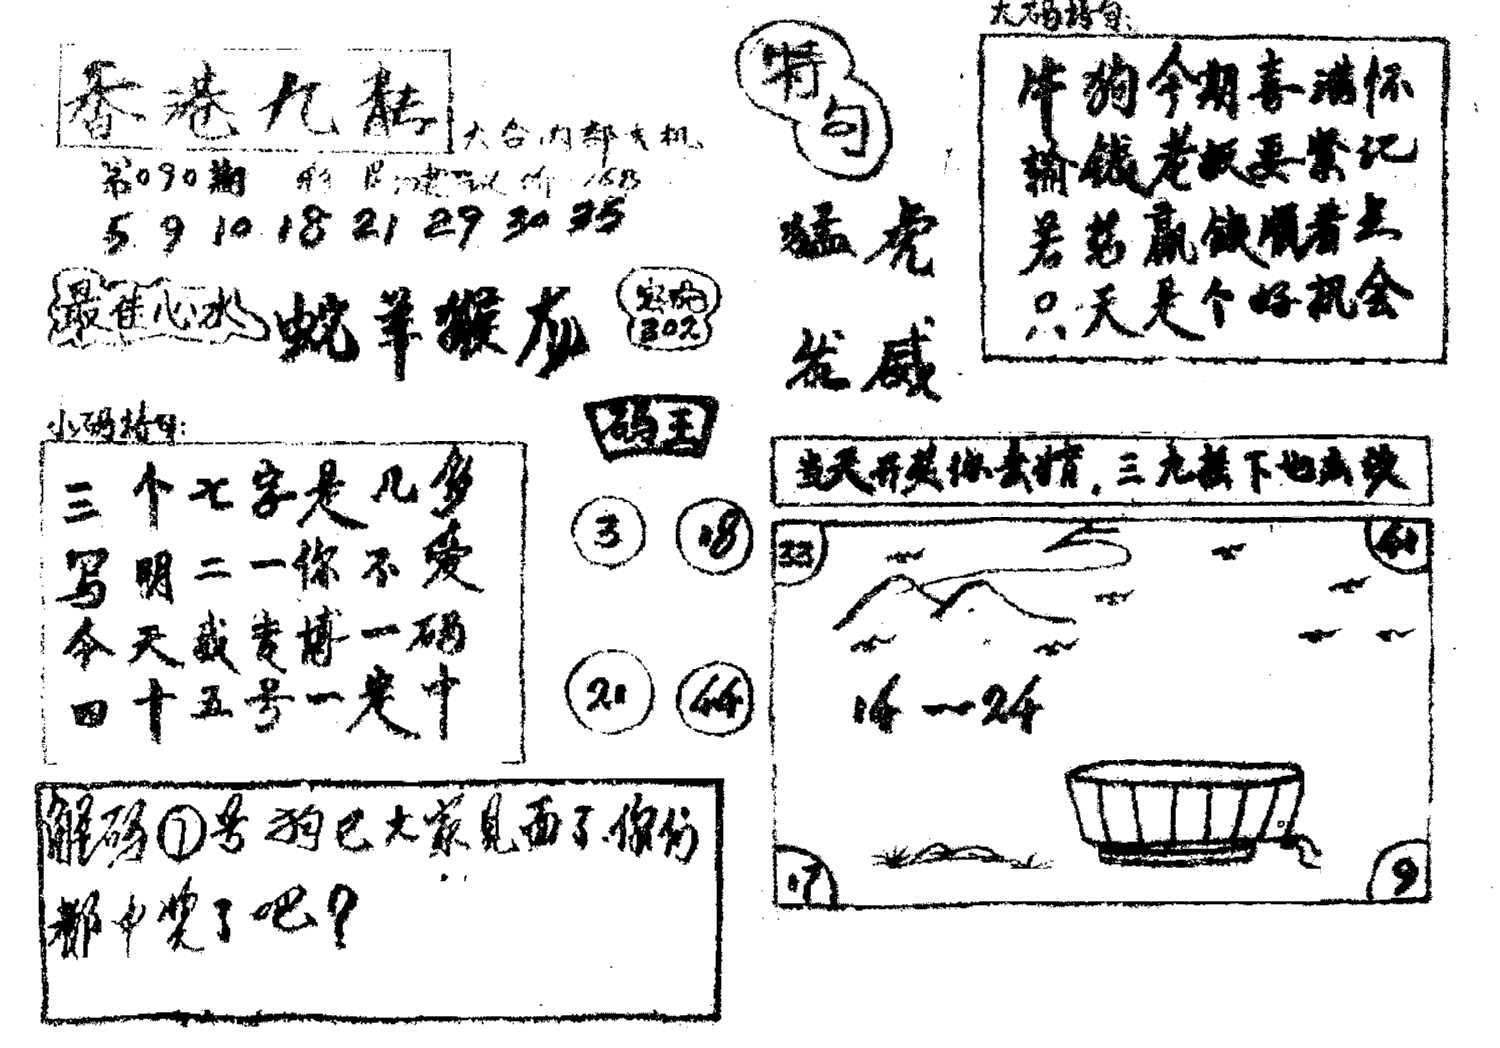 香港九龙
六合内部玄机
第090期
5 9 10 18 21 29 30 35
最佳心水
蛇羊猴龙
302
小码特句:
三个七字是几多
写明二一你不爱
今天我要博一码
四十五号一定中
码王
3 18
21 44
解码⑦号狗已大家见面了你们
都中奖了吧?
特句
猛虎
发威
大码特句:
牛狗今期喜满怀
输钱老板要紧记
若想赢钱顺着上
只天是个好机会
当天开奖你去猜.三九摇下也
33 41
14—24
17 9